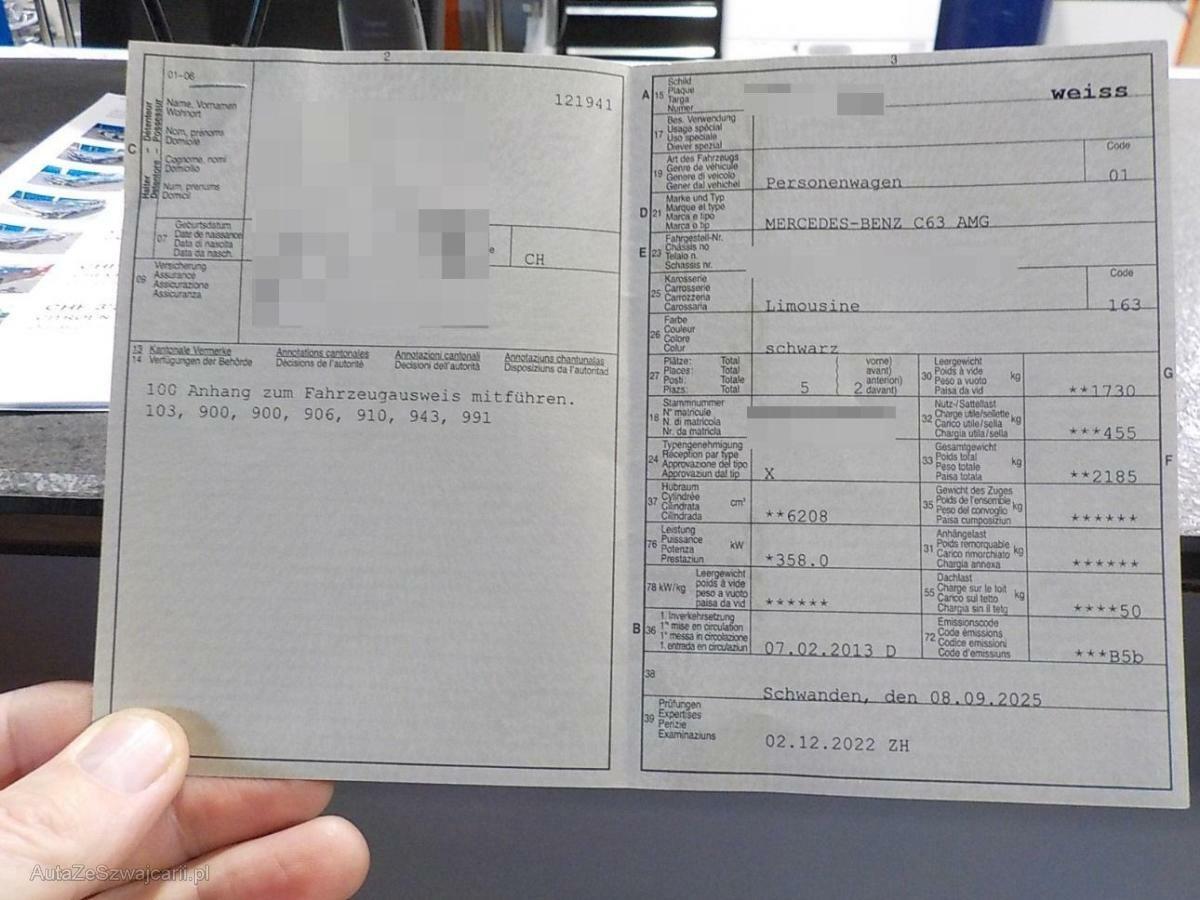 2
01-06
Halter - Détenteur
Detentore - Possessur
C
Name, Vornamen
Wohnort
Nom, prénoms
Domicile
Cognome, nomi
Domicilio
Num, prenums
Domicil
121941
07
Geburtsdatum
Date de naissance
Data di nascita
Data da nasch.
e
CH
09
Versicherung
Assurance
Assicurazione
Assicuranza
13
14
Kantonale Vermerke
Verfügungen der Behörde
Annotations cantonales
Décisions de l'autorité
Annotazioni cantonali
Decisioni dell'autorità
Annotaziuns chantunalas
Disposiziuns da l'autoritad
100 Anhang zum Fahrzeugausweis mitführen.
103, 900, 900, 906, 910, 943, 991
3
A 15
Schild
Plaque
Targa
Numer
weiss
17
Bes. Verwendung
Usage spécial
Uso speciale
Diever spezial
19
Art des Fahrzeugs
Genre de véhicule
Genere di veicolo
Gener dal vehichel
Personenwagen
Code
01
D 21
Marke und Typ
Marque et type
Marca e tipo
Marca e tip
MERCEDES-BENZ C63 AMG
E 23
Fahrgestell-Nr.
Châssis no
Telaio n.
Schassis nr.
25
Karosserie
Carrosserie
Carrozzeria
Carossaria
Limousine
Code
163
26
Farbe
Couleur
Colore
Colur
schwarz
27
Plätze: Total vorne)
Places: Total avant)
Posti: Totale anteriori)
Plazs: Total 5 2 davant)
30
Leergewicht
Poids à vide
Peso a vuoto
Paisa da vid
kg
**1730
G
18
Stammnummer
N° matricule
N. di matricola
Nr. da matricla
32
Nutz-/Sattellast
Charge utile/sellette
Carico utile/sella
Chargia utila/sella
kg
***455
24
Typengenehmigung
Réception par type
Approvazione del tipo
Approvaziun dal tip
X
33
Gesamtgewicht
Poids total
Peso totale
Paisa totala
kg
**2185
F
37
Hubraum
Cylindrée
Cilindrata
Cilindrada
cm³
**6208
35
Gewicht des Zuges
Poids de l'ensemble
Peso del convoglio
Paisa cumposiziun
kg
******
76
Leistung
Puissance
Potenza
Prestaziun
kW
*358.0
31
Anhängelast
Poids remorquable
Carico rimorchiato
Chargia annexa
kg
******
78 kW/kg
Leergewicht
poids à vide
peso a vuoto
paisa da vid
******
55
Dachlast
Charge sur le toit
Carico sul tetto
Chargia sin il tetg
kg
****50
B 36
1. Inverkehrsetzung
1re mise en circulation
1a messa in circolazione
1. entrada en circulaziun
07.02.2013 D
72
Emissionscode
Code émissions
Codice emissioni
Code d'emissiuns
***B5b
38
Schwanden, den 08.09.2025
39
Prüfungen
Expertises
Perizie
Examinaziuns
02.12.2022 ZH
AutaZeSzwajcarii.pl